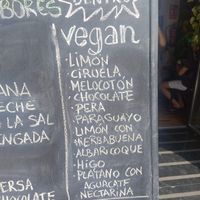 BORES
DENTRO
vegan
• LIMÓN
• CIRUELA
• MELOCOTÓN
• CHOCOLATE
• PERA
• PARAGUAYO
• LIMÓN CON
HIERBABUENA
• ALBARICOQUE
• HIGO
• PLATANO CON
AGUACATE
• NECTARINA
ANA
ECHE
LA SAL
ENGADA
ERSA
CHOCOLATE